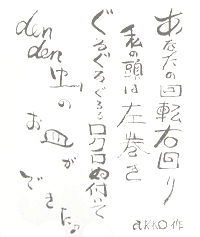 あなたの回転右回り
私の頭は左巻き
ぐるぐるぐるぐるロクロぬ付いて
den den 虫のお皿ができた。
akko作